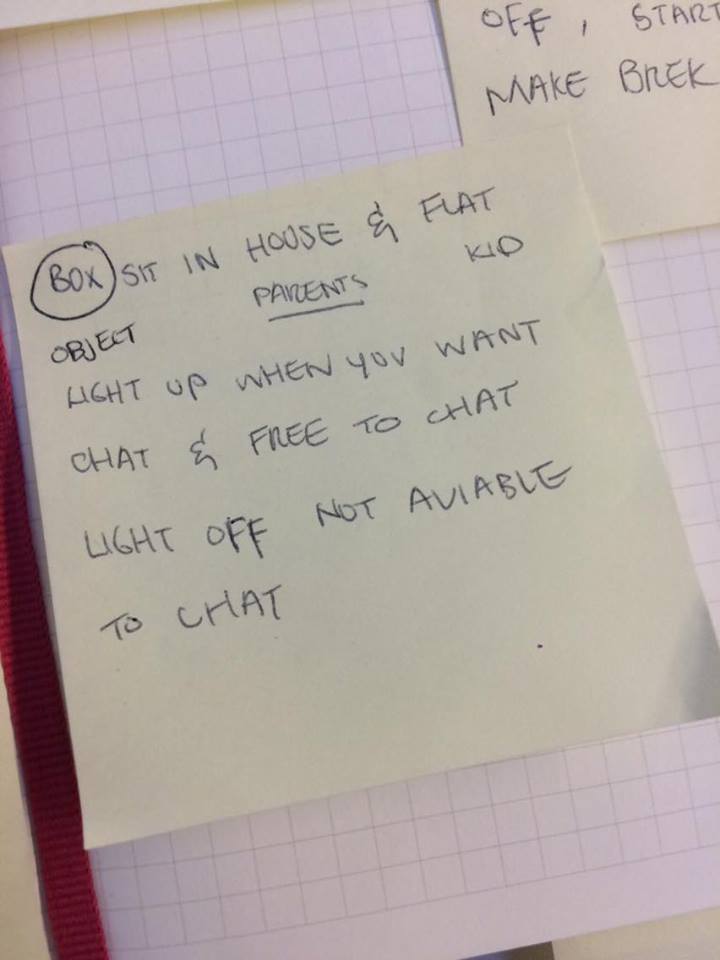 OFF, START
MAKE BREK
BOX SIT IN HOUSE & FLAT
PARENTS KID
OBJECT
LIGHT UP WHEN YOU WANT
CHAT & FREE TO CHAT
LIGHT OFF NOT AVIABLE
TO CHAT